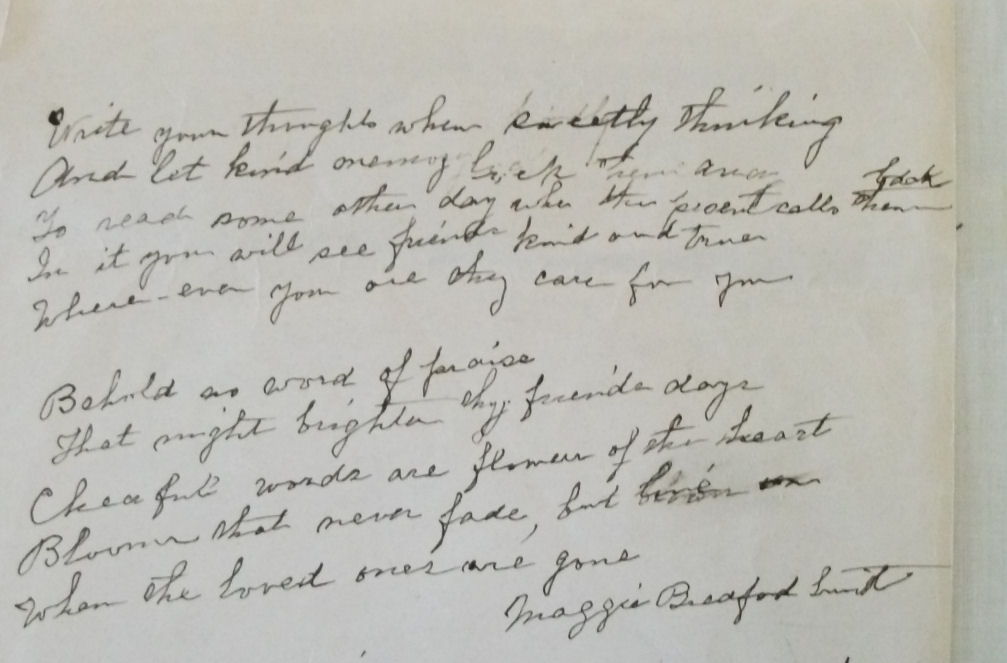 Write your thoughts when sweetly thinking
And let kind memory them
To read some other day when the calls them back
In it you will see friends kind and true
Where-ever you are they care for you
Behold no word of praise
That might brighten thy friends days
Cheerful words are flowers of the heart
Blooms that never fade, but
When the loved ones are gone
Maggie Bradford Smith